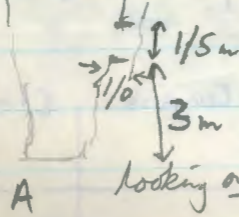 1/5 m
1/0
3 m
A
looking